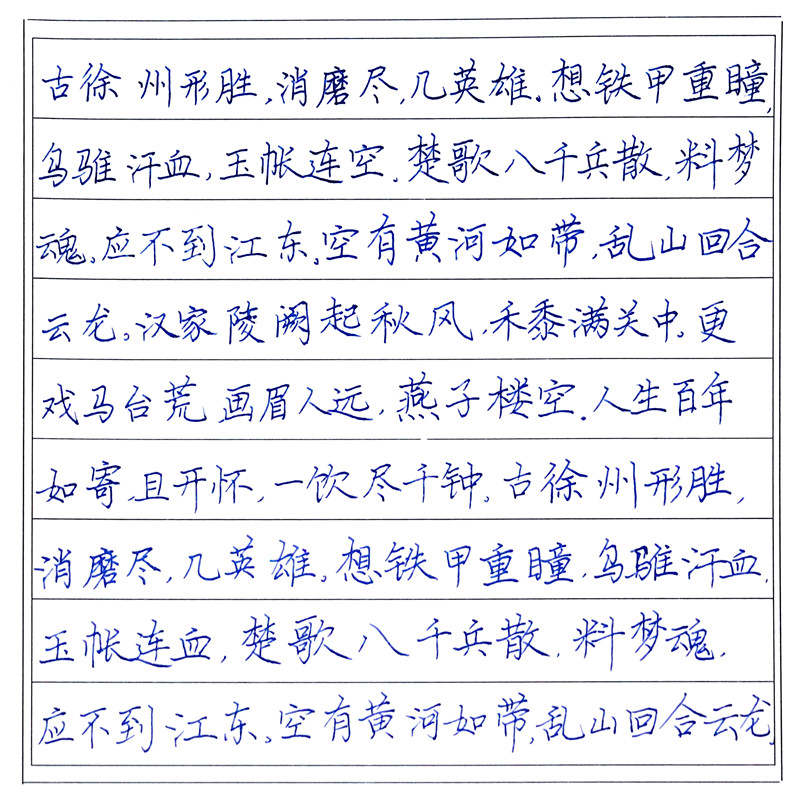 古徐州形胜,消磨尽,几英雄.想铁甲重瞳,
乌骓汗血,玉帐连空.楚歌八千兵散,料梦
魂。应不到江东。空有黄河如带,乱山回合
云龙。汉家陵阙起秋风,禾黍满关中。更
戏马台荒,画眉人远,燕子楼空.人生百年
如寄,且开怀,一饮尽千钟。古徐州形胜,
消磨尽,几英雄。想铁甲重瞳,乌骓汗血,
玉帐连血,楚歌八千兵散,料梦魂,
应不到江东。空有黄河如带,乱山回合云龙,